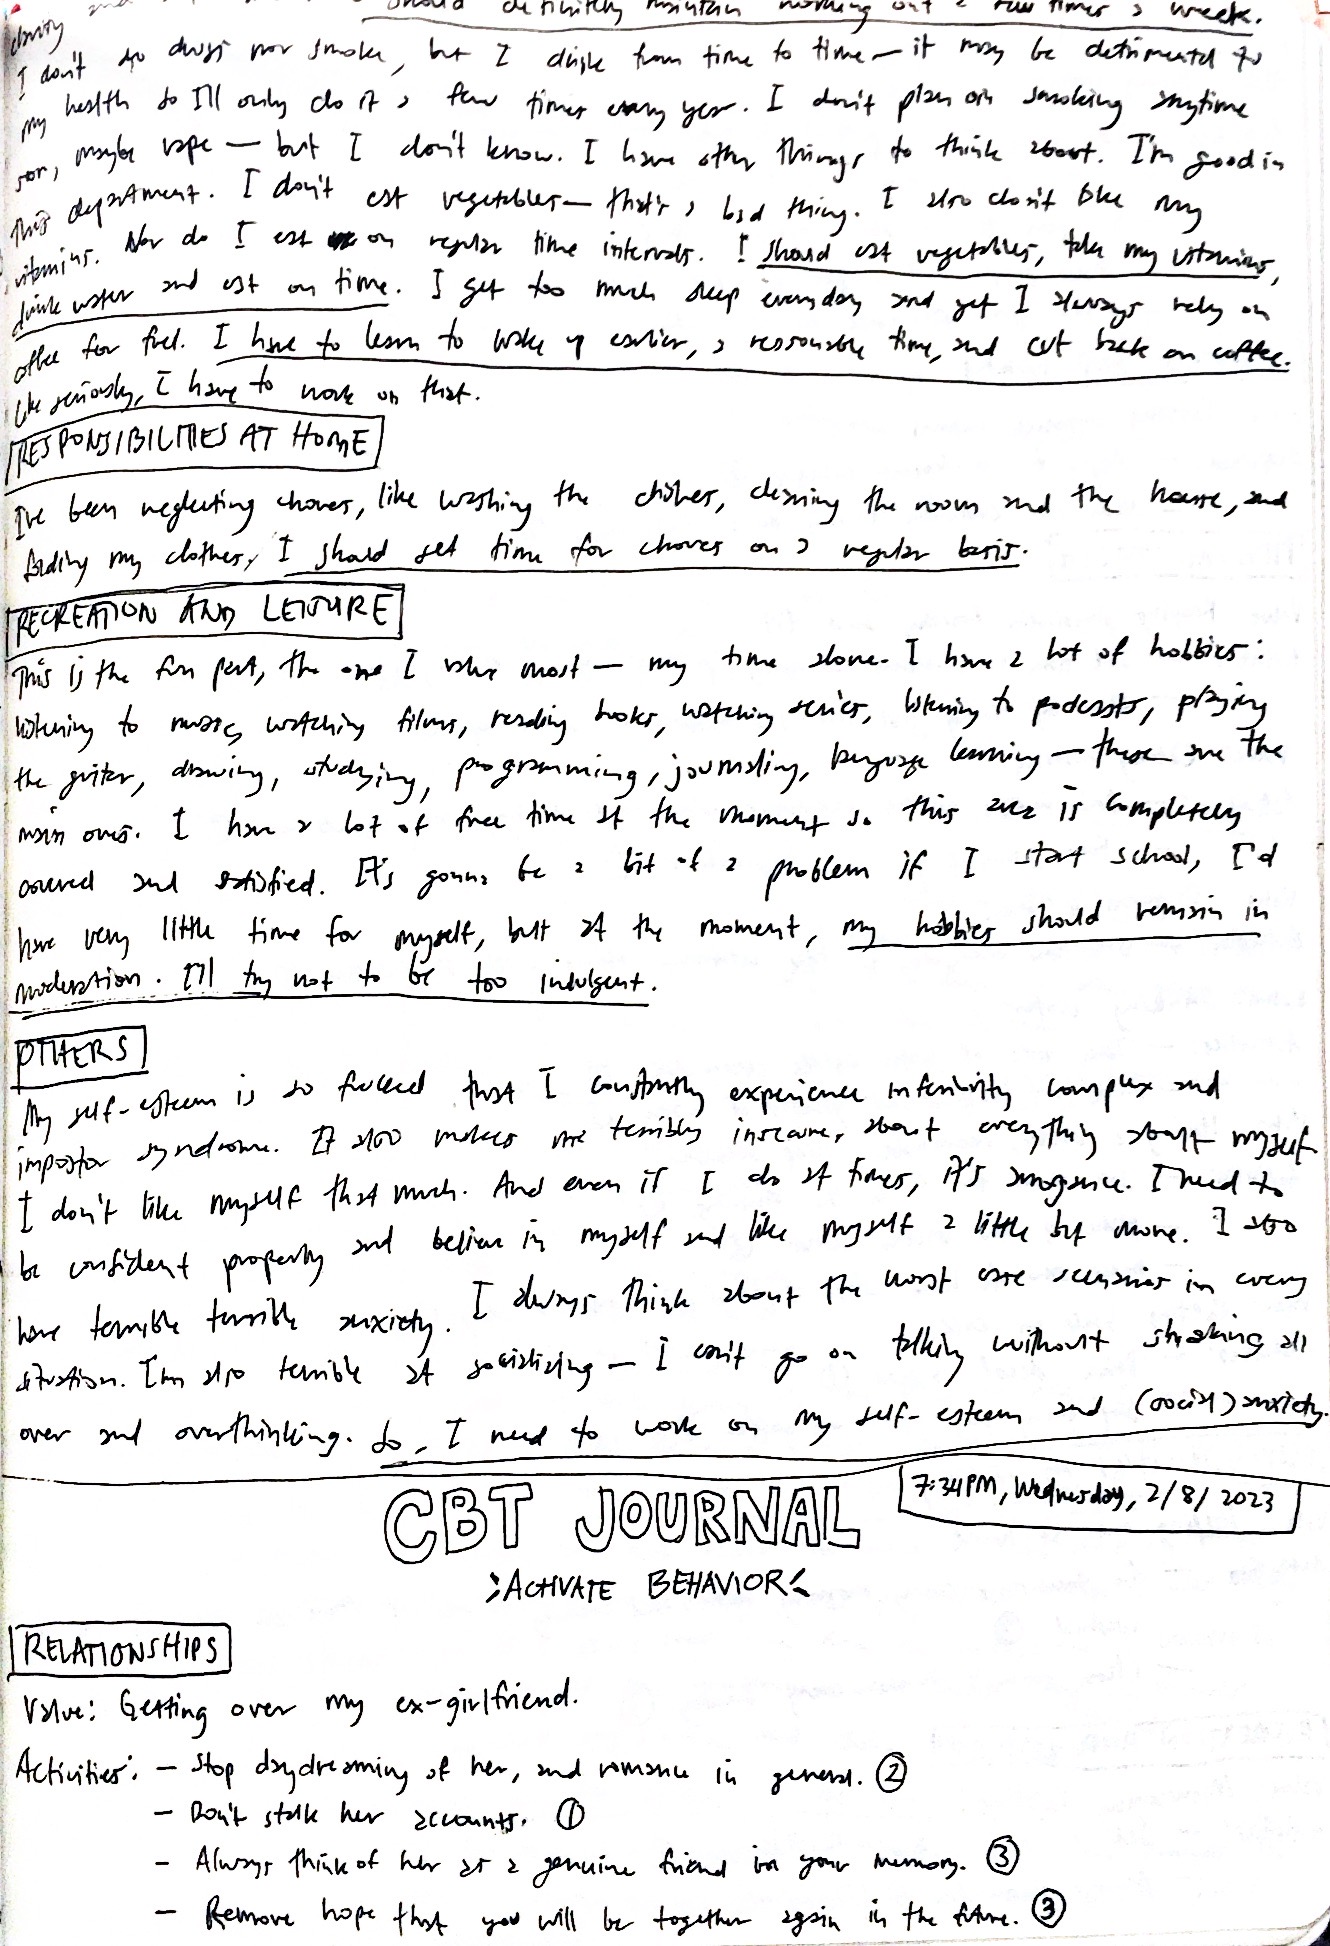 should definitely maintain working out a few times a week.
clarity
I don't do drugs nor smoke, but I drink from time to time — it may be detrimental to
my health so I'll only do it a few times every year. I don't plan on smoking anytime
soon, maybe vape — but I don't know. I have other things to think about. I'm good in
this department. I don't eat vegetables — that's a bad thing. I also don't take my
vitamins. Nor do I eat on regular time intervals. I should eat vegetables, take my vitamins,
drink water and eat on time. I get too much sleep everyday and yet I always rely on
coffee for fuel. I have to learn to wake up earlier, a reasonable time, and cut back on coffee.
Like seriously, I have to work on that.
RESPONSIBILITIES AT HOME
I've been neglecting chores, like washing the dishes, cleaning the room and the house, and
folding my clothes, I should set time for chores on a regular basis.
RECREATION AND LEISURE
This is the fun part, the one I value most — my time alone. I have a lot of hobbies:
listening to music, watching films, reading books, watching series, listening to podcasts, playing
the guitar, drawing, studying, programming, journaling, language learning — these are the
main ones. I have a lot of free time at the moment so this area is completely
covered and satisfied. It's gonna be a bit of a problem if I start school, I'd
have very little time for myself, but at the moment, my hobbies should remain in
moderation. I'll try not to be too indulgent.
OTHERS
My self-esteem is so fucked that I constantly experience inferiority complex and
impostor syndrome. It also makes me terribly insecure, about everything about myself
I don't like myself that much. And even if I do at times, it's arrogance. I need to
be confident properly and believe in myself and like myself a little bit more. I also
have terrible terrible anxiety. I always think about the worst case scenarios in every
situation. I'm also terrible at socializing — I can't go on talking without shaking all
over and overthinking. So, I need to work on my self-esteem and (social) anxiety.
CBT JOURNAL
7:34PM, Wednesday, 2/8/2023
>ACTIVATE BEHAVIOR<
RELATIONSHIPS
Value: Getting over my ex-girlfriend.
Activities: — Stop daydreaming of her, and romance in general. ②
— Don't stalk her accounts. ①
— Always think of her as a genuine friend in your memory. ③
— Remove hope that you will be together again in the future. ③